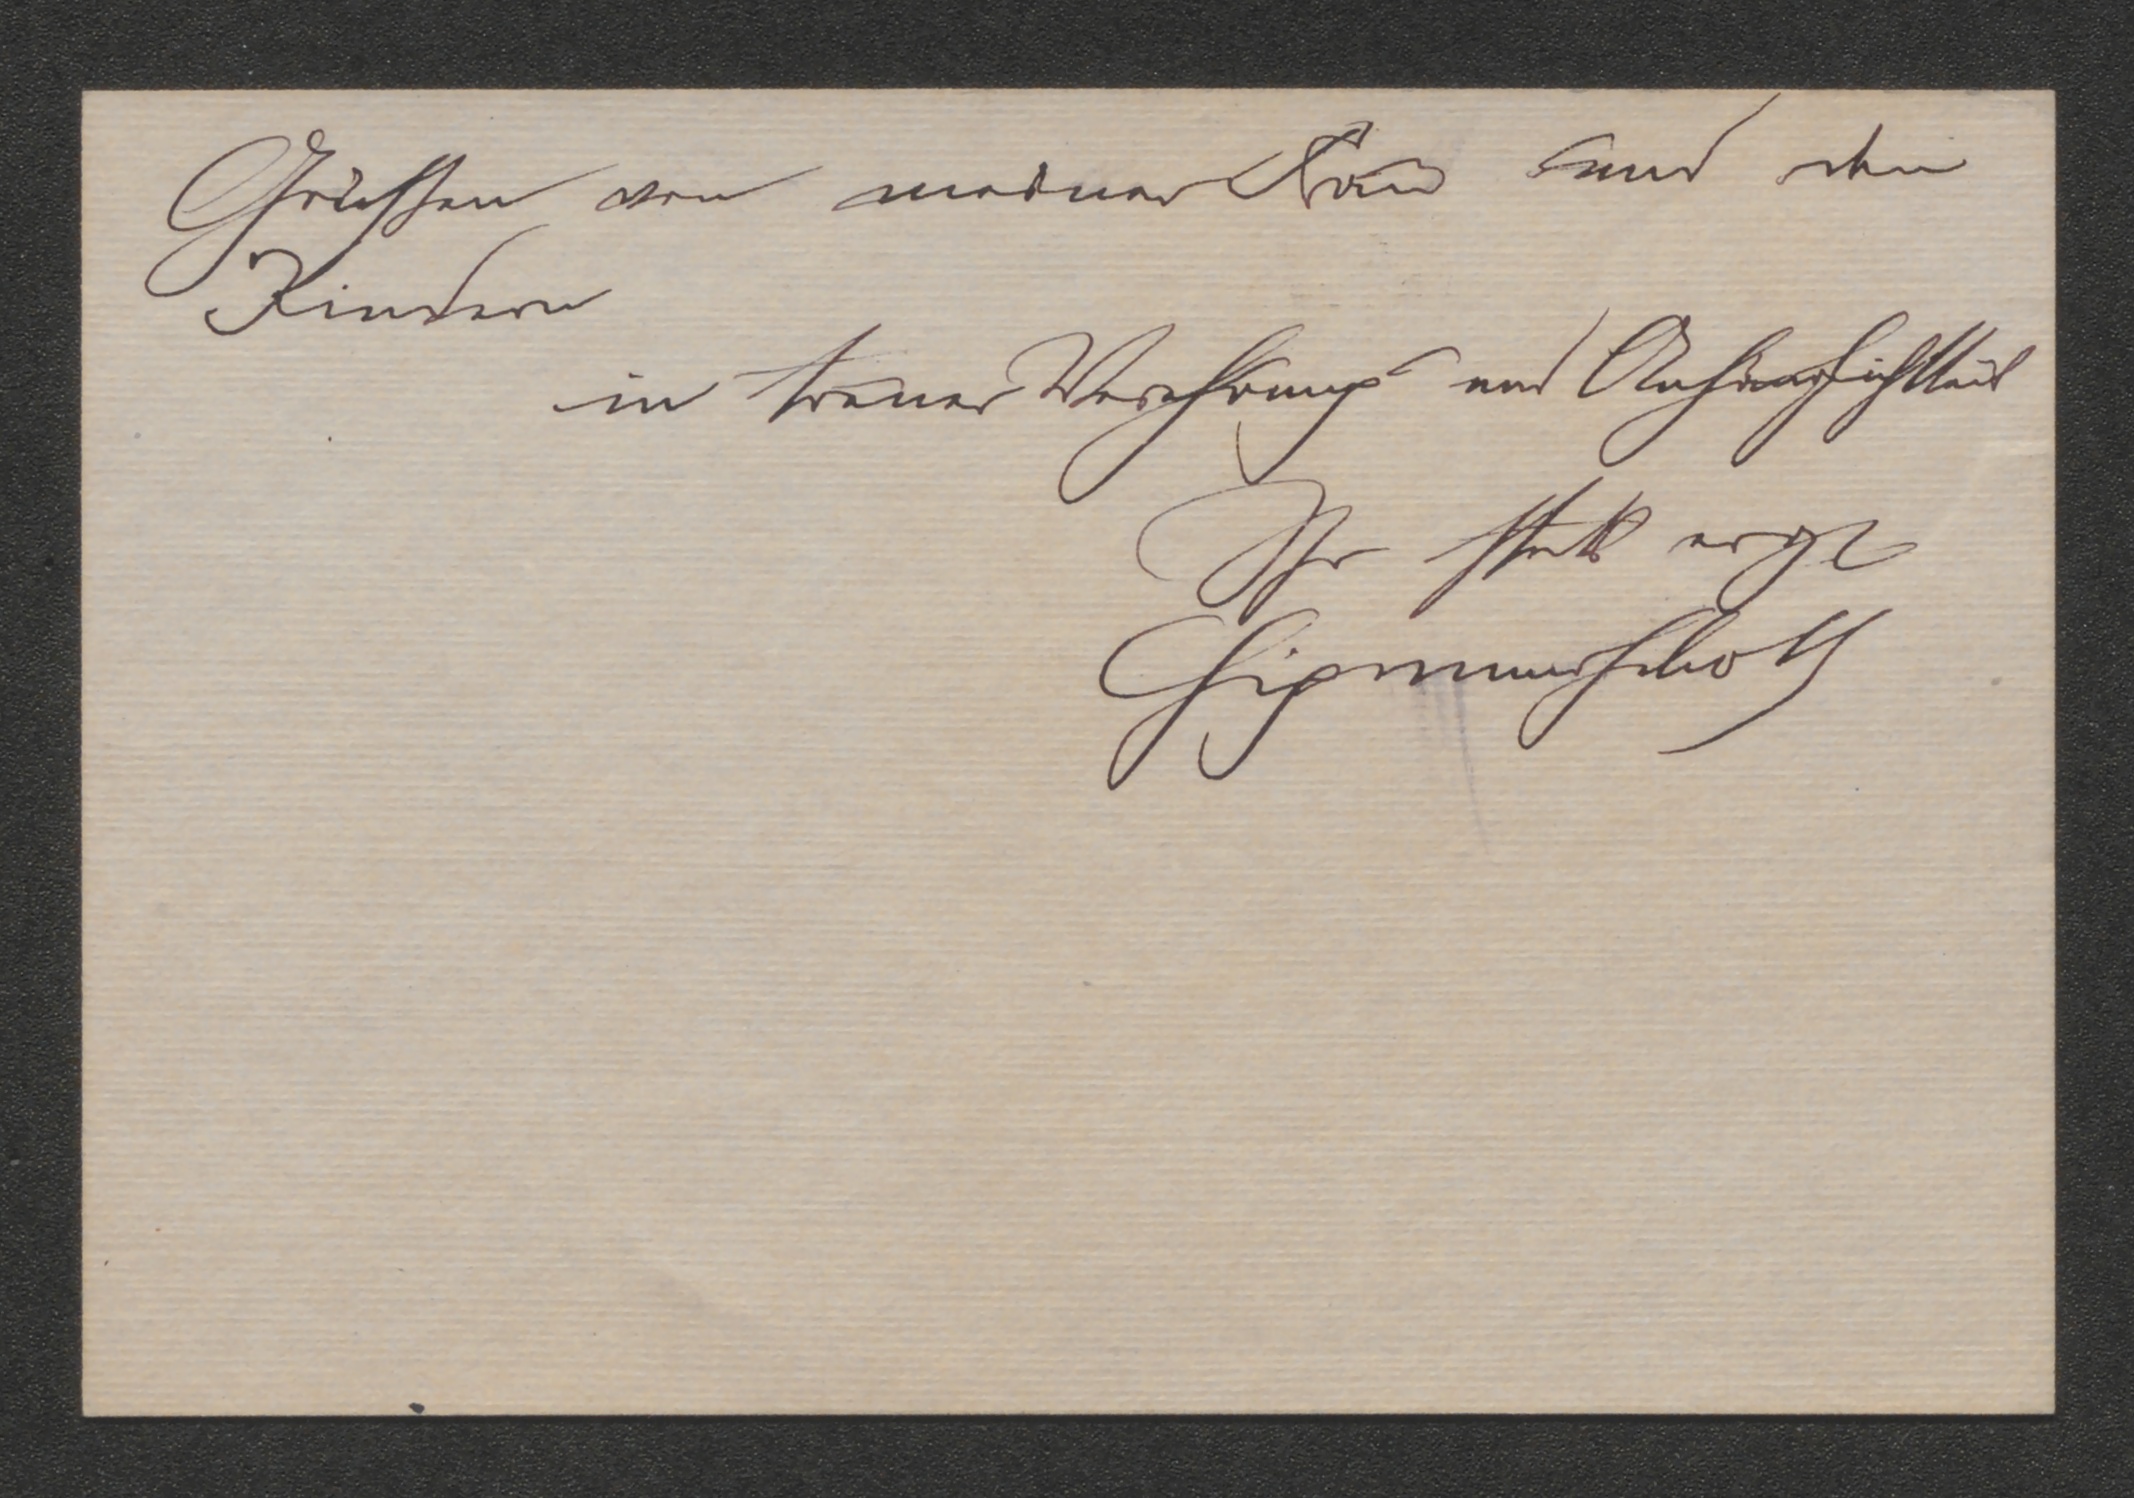 Grüßen von meiner Frau und den
Kindern
in treuer Verehrung und Anhänglichkeit
Ihr stets ergb